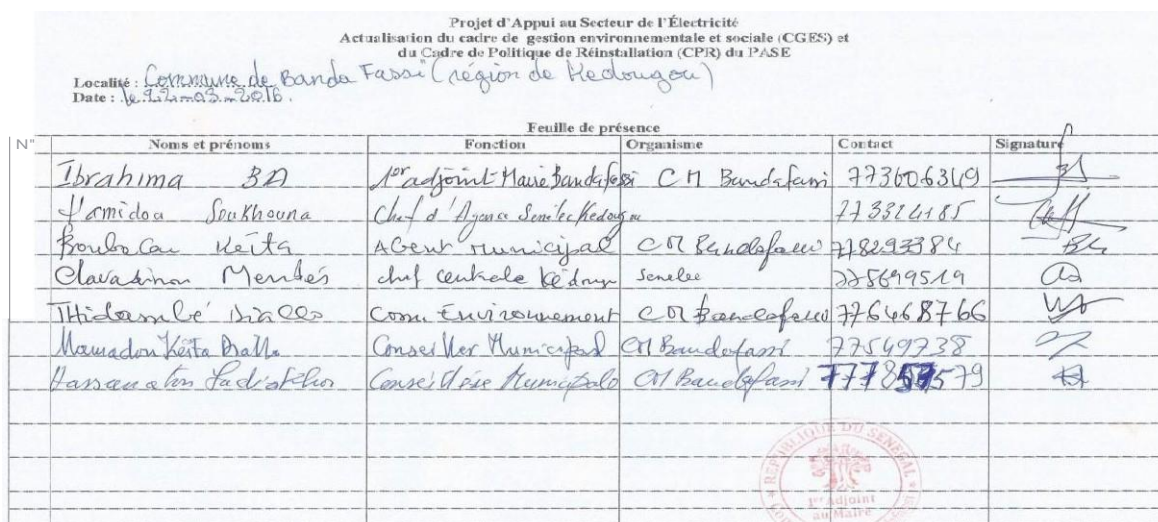 Projet d'Appui au Secteur de l'Électricité
Actualisation du cadre de gestion environnementale et sociale (CGES) et
du Cadre de Politique de Réinstallation (CPR) du PASE
Localité : Commune de Banda Fassi (région de Kedougou)
Date : le 22-03-2016.
Feuille de présence
N° Noms et prénoms Fonction Organisme Contact Signature
Ibrahima BA 1er adjoint Maire Bandafassi CM Bandafassi 773606349
Soukhouna Chef d'Agence Senelec Kedougou
Keita Agent municipal CM Bandafassi
Mendes chef centrale Kédougou Senelec 775699519
Diallo Com Environnement CM Bandafassi 776468766
Mamadou Keita Conseiller Municipal CM Bandafassi 77549738
Conseillère Municipale CM Bandafassi
RÉPUBLIQUE DU SENEGAL
1er Adjoint
au Maire